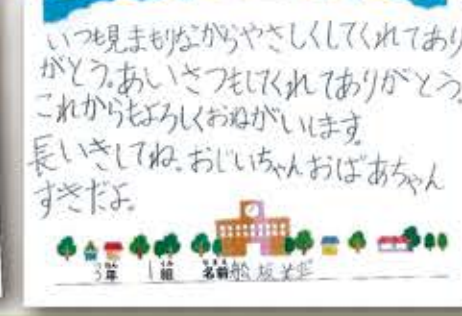 いつも見まもりながらやさしくしてくれてあり
がとう。あいさつもしてくれてありがとう。
これからもよろしくおねがいします
長いきしてね。おじいちゃんおばあちゃん
すきだよ。
3年 1組 名前